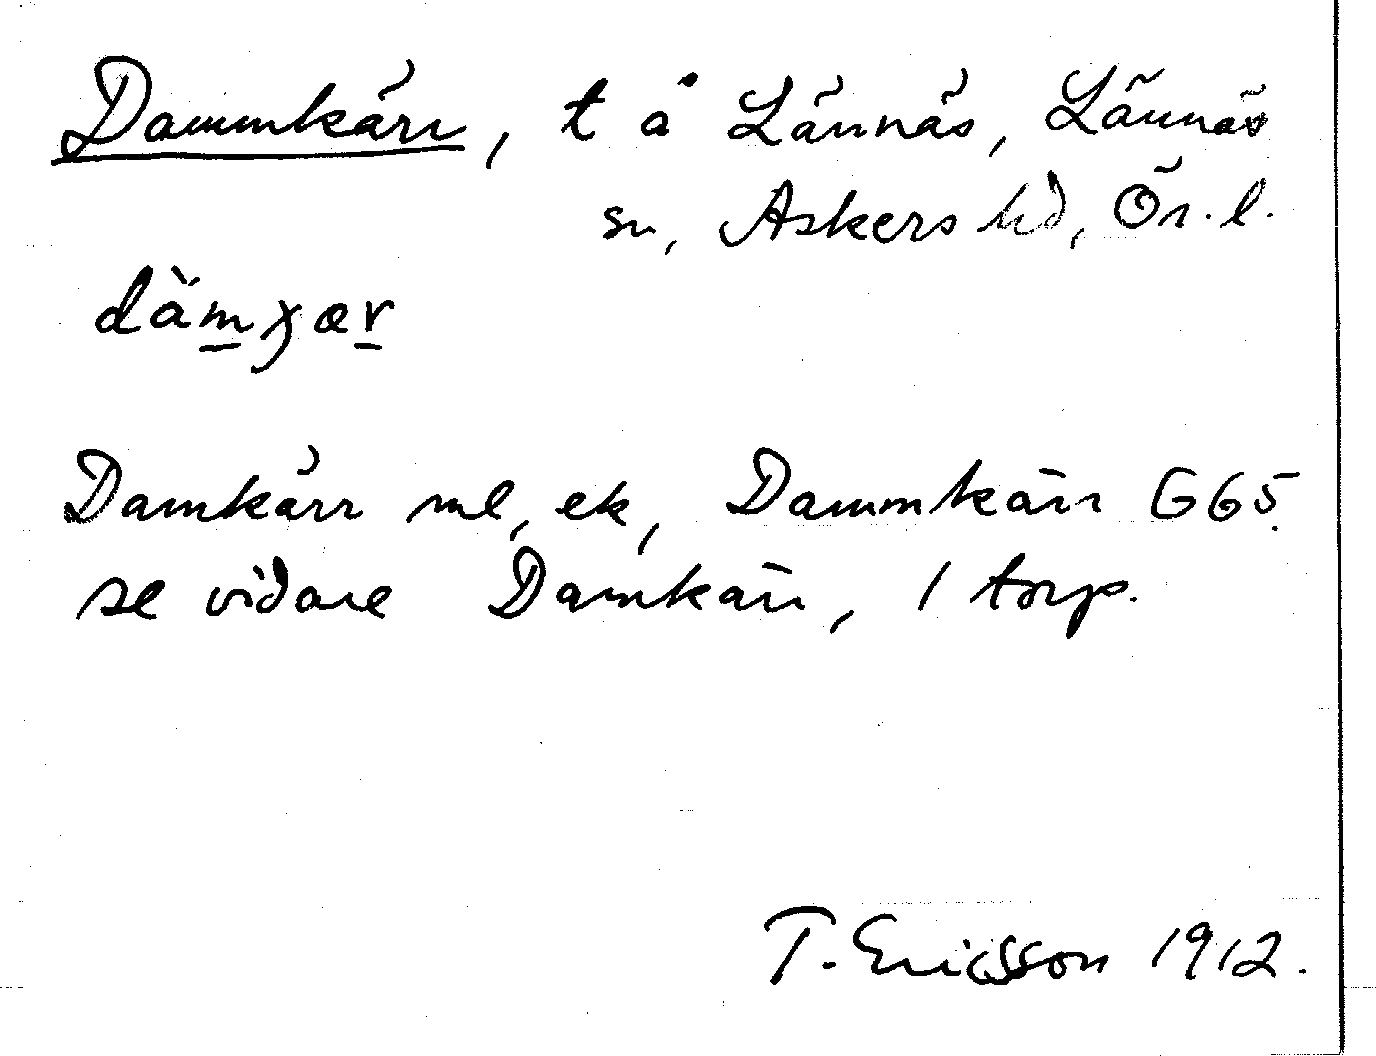 Dammkärr, t å Lännäs, Lännäs
sn, Askers hd, Ör. l.
dàmχær
Damkärr ml, ek, Dammkärr G65.
se vidare Damkärr, 1 torp.
T. Ericsson 1912.